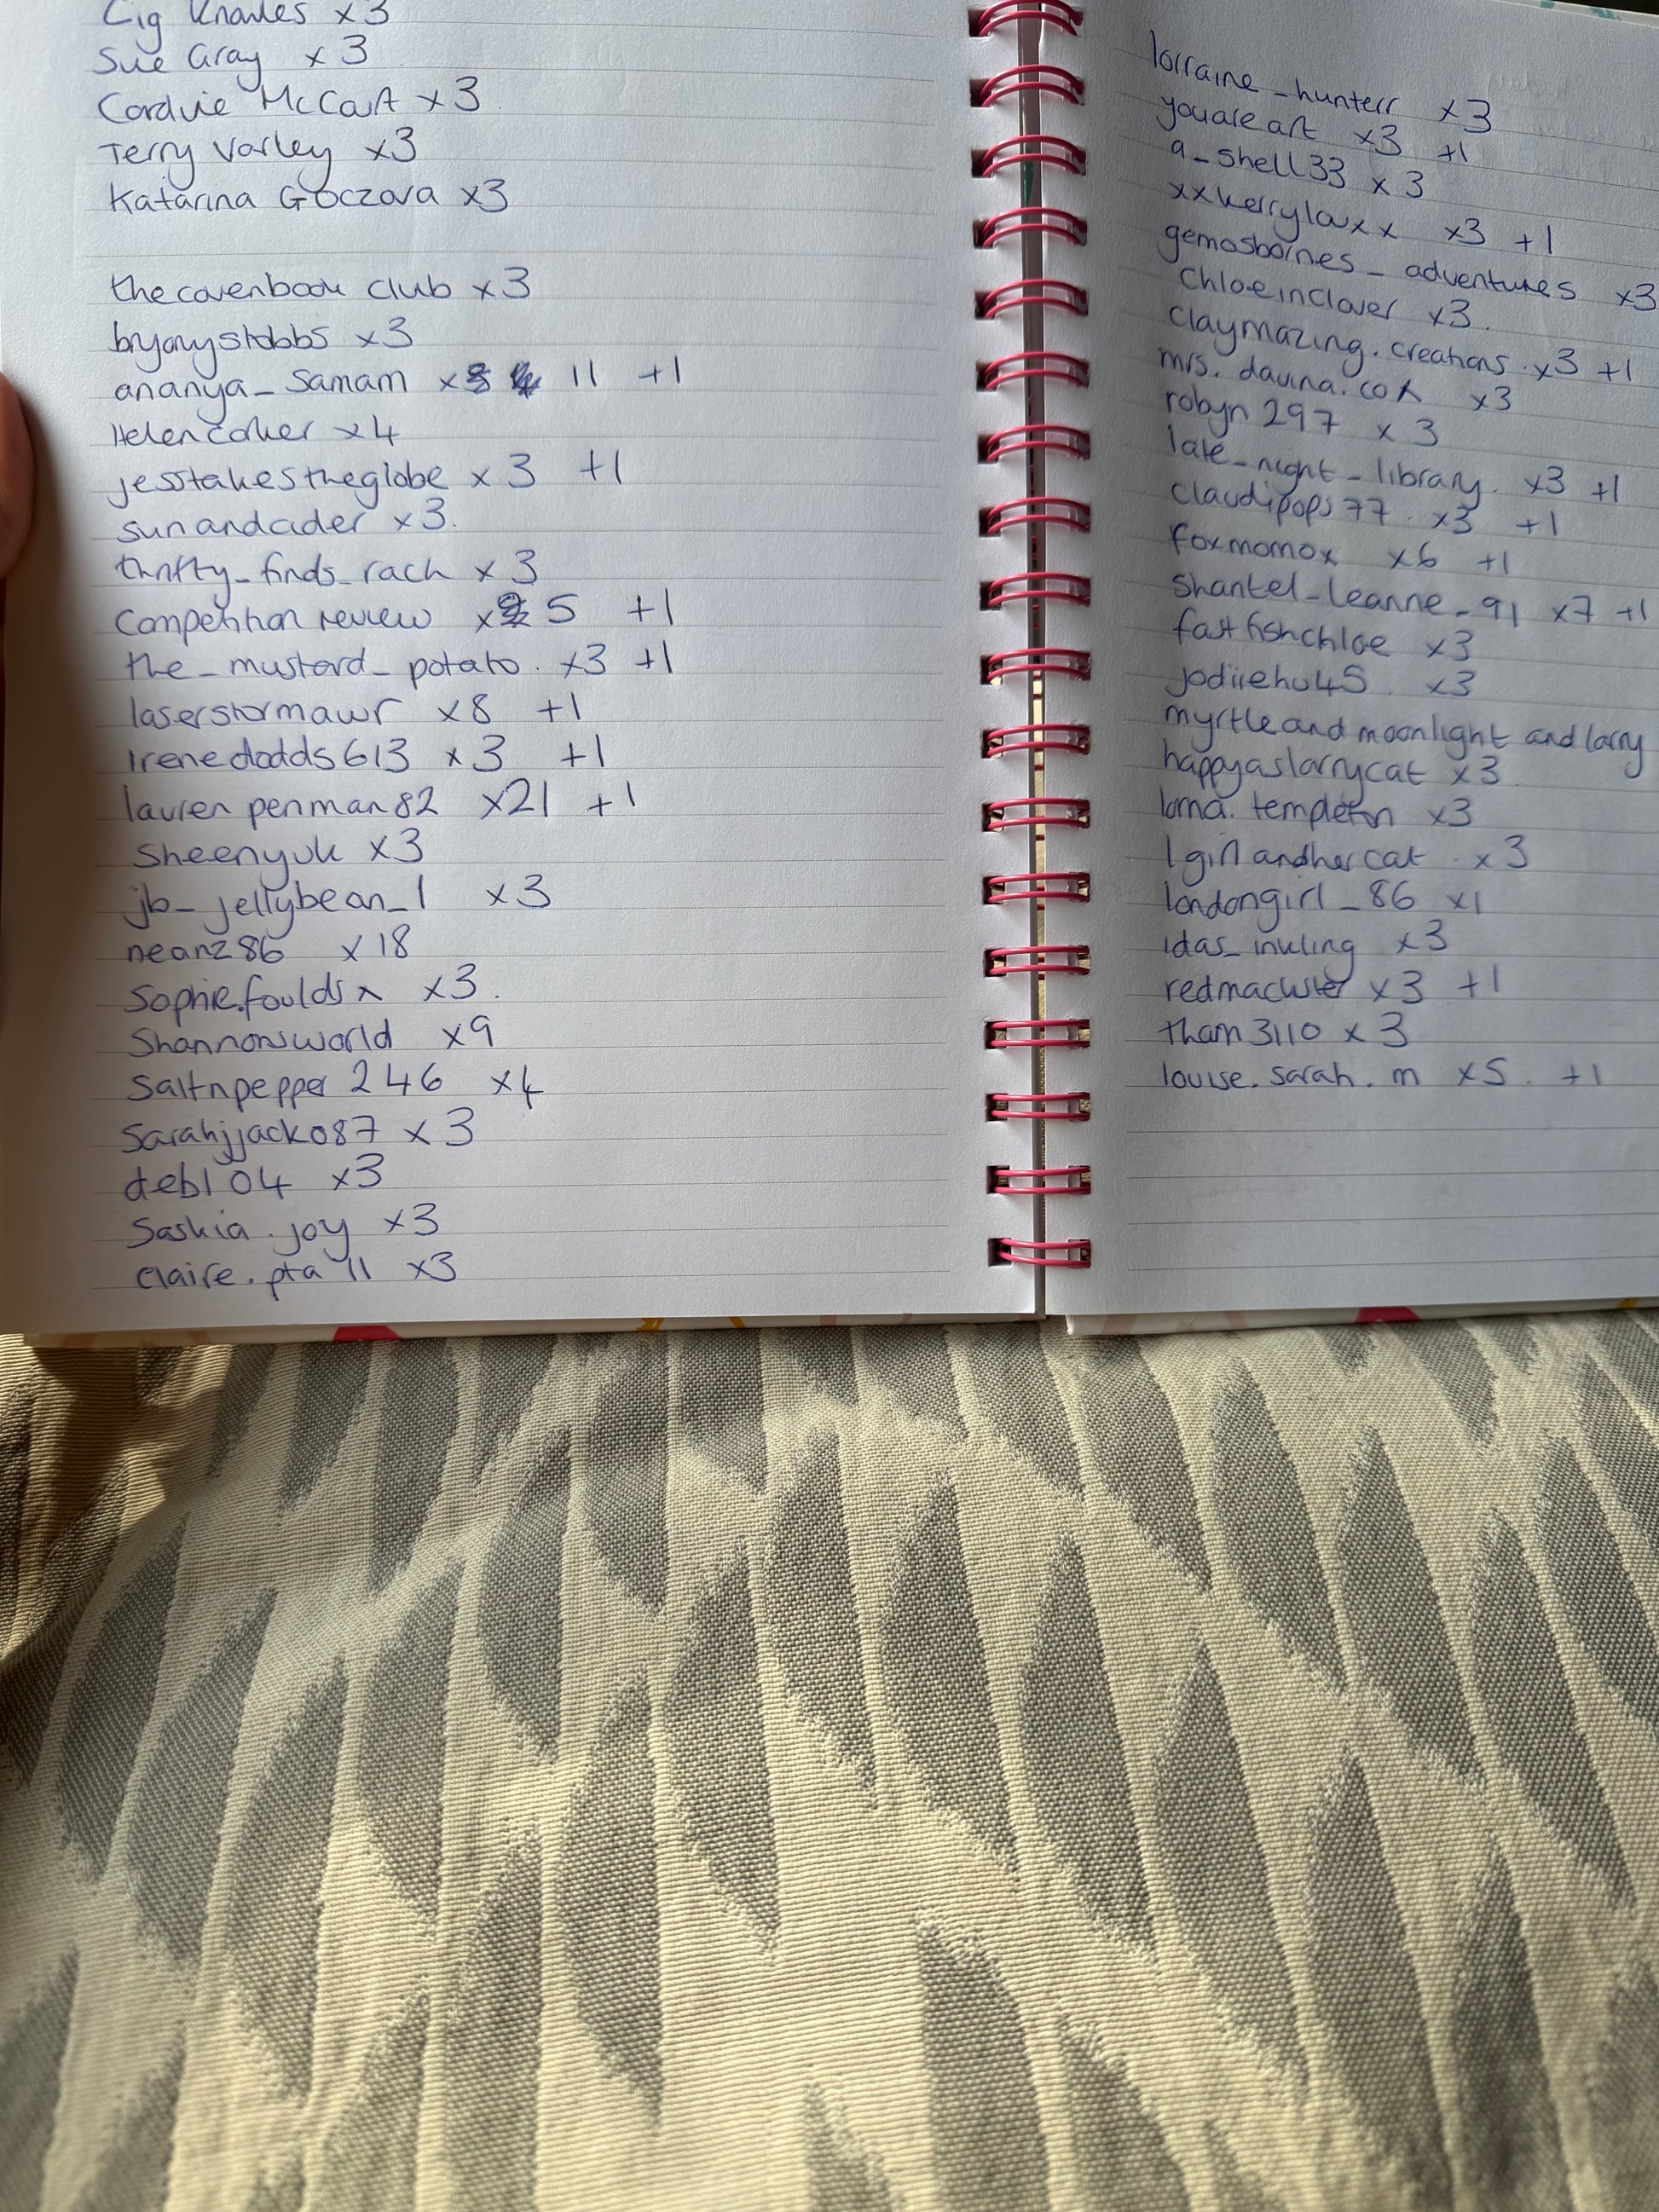 Knowles x3
Sue Gray x3
McCart x3
Terry Varley x3
Katarina Goczova x3
thecovenbook club x3
bryonystobbs x3
ananya_samam x 11 +1
Helencoker x4
jesstakestheglobe x3 +1
sunandcider x3.
thrifty_finds_rach x3
Competition review x 5 +1
the_mustard_potato. x3 +1
laserstormawr x8 +1
Irenedodds613 x3 +1
lauren penman82 x21 +1
Sheenyuk x3
jb_jellybean_1 x3
neanz86 x18
Sophie.fouldsx x3.
Shannonsworld x9
Saltnpepper246 x4
Sarahjjacko87 x3
deb104 x3
Saskia.joy x3
claire.pta11 x3
lorraine_hunterr x3
youareart x3 +1
a_shell33 x3
xxkerrylouxx x3 +1
gemosbornes_adventures x3
Chloeinclover x3.
claymazing.creations. x3 +1
mrs.davina.cox x3
robyn297 x3
late_night_library. x3 +1
claudipops77. x3 +1
foxmomox x6 +1
shantel_leanne_91 x7 +1
fastfishchloe x3
jodiiehu45. x3
myrtleand moonlight and larry
happyaslarrycat x3
lorna.templeton x3
1girlandhercat. x3
londongirl_86 x1
idas_inkling x3
x3 +1
tham3110 x3
louise.sarah.m x5. +1